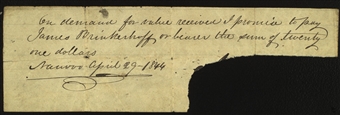 On demand for value received I promise to pay
James Brinkerhoff or bearer the sum of twenty
one dollars
Nauvoo April 29 - 1844